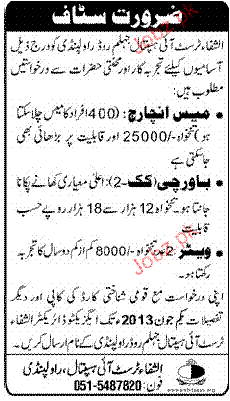 ضرورت سٹاف
الشفاء ٹرسٹ آئی ہسپتال جہلم روڈ راولپنڈی کو درج ذیل
آسامیوں کیلئے تجربہ کار اور محنتی حضرات سے درخواستیں
مطلوب ہیں:
میس انچارج: (400 افراد کا میس چلا سکتا
ہو) تنخواہ -/25000 اور قابلیت پر بڑھائی بھی
جا سکتی ہے
باورچی (کک-2): اعلیٰ معیاری کھانے پکانا
جانتا ہو۔ تنخواہ 12 ہزار سے 18 ہزار روپے حسب
قابلیت
ویٹر: 2 عدد تنخواہ -/8000 کم از کم دو سال کا تجربہ
رکھتا ہو۔
اپنی درخواست مع قومی شناختی کارڈ کی کاپی اور دیگر
تفصیلات یکم جون 2013 تک ایگزیکٹو ڈائریکٹر الشفاء
ٹرسٹ آئی ہسپتال جہلم روڈ راولپنڈی کے نام ارسال کریں۔
الشفاء ٹرسٹ آئی ہسپتال، راولپنڈی
فون: 051-5487820
Jobz.pk